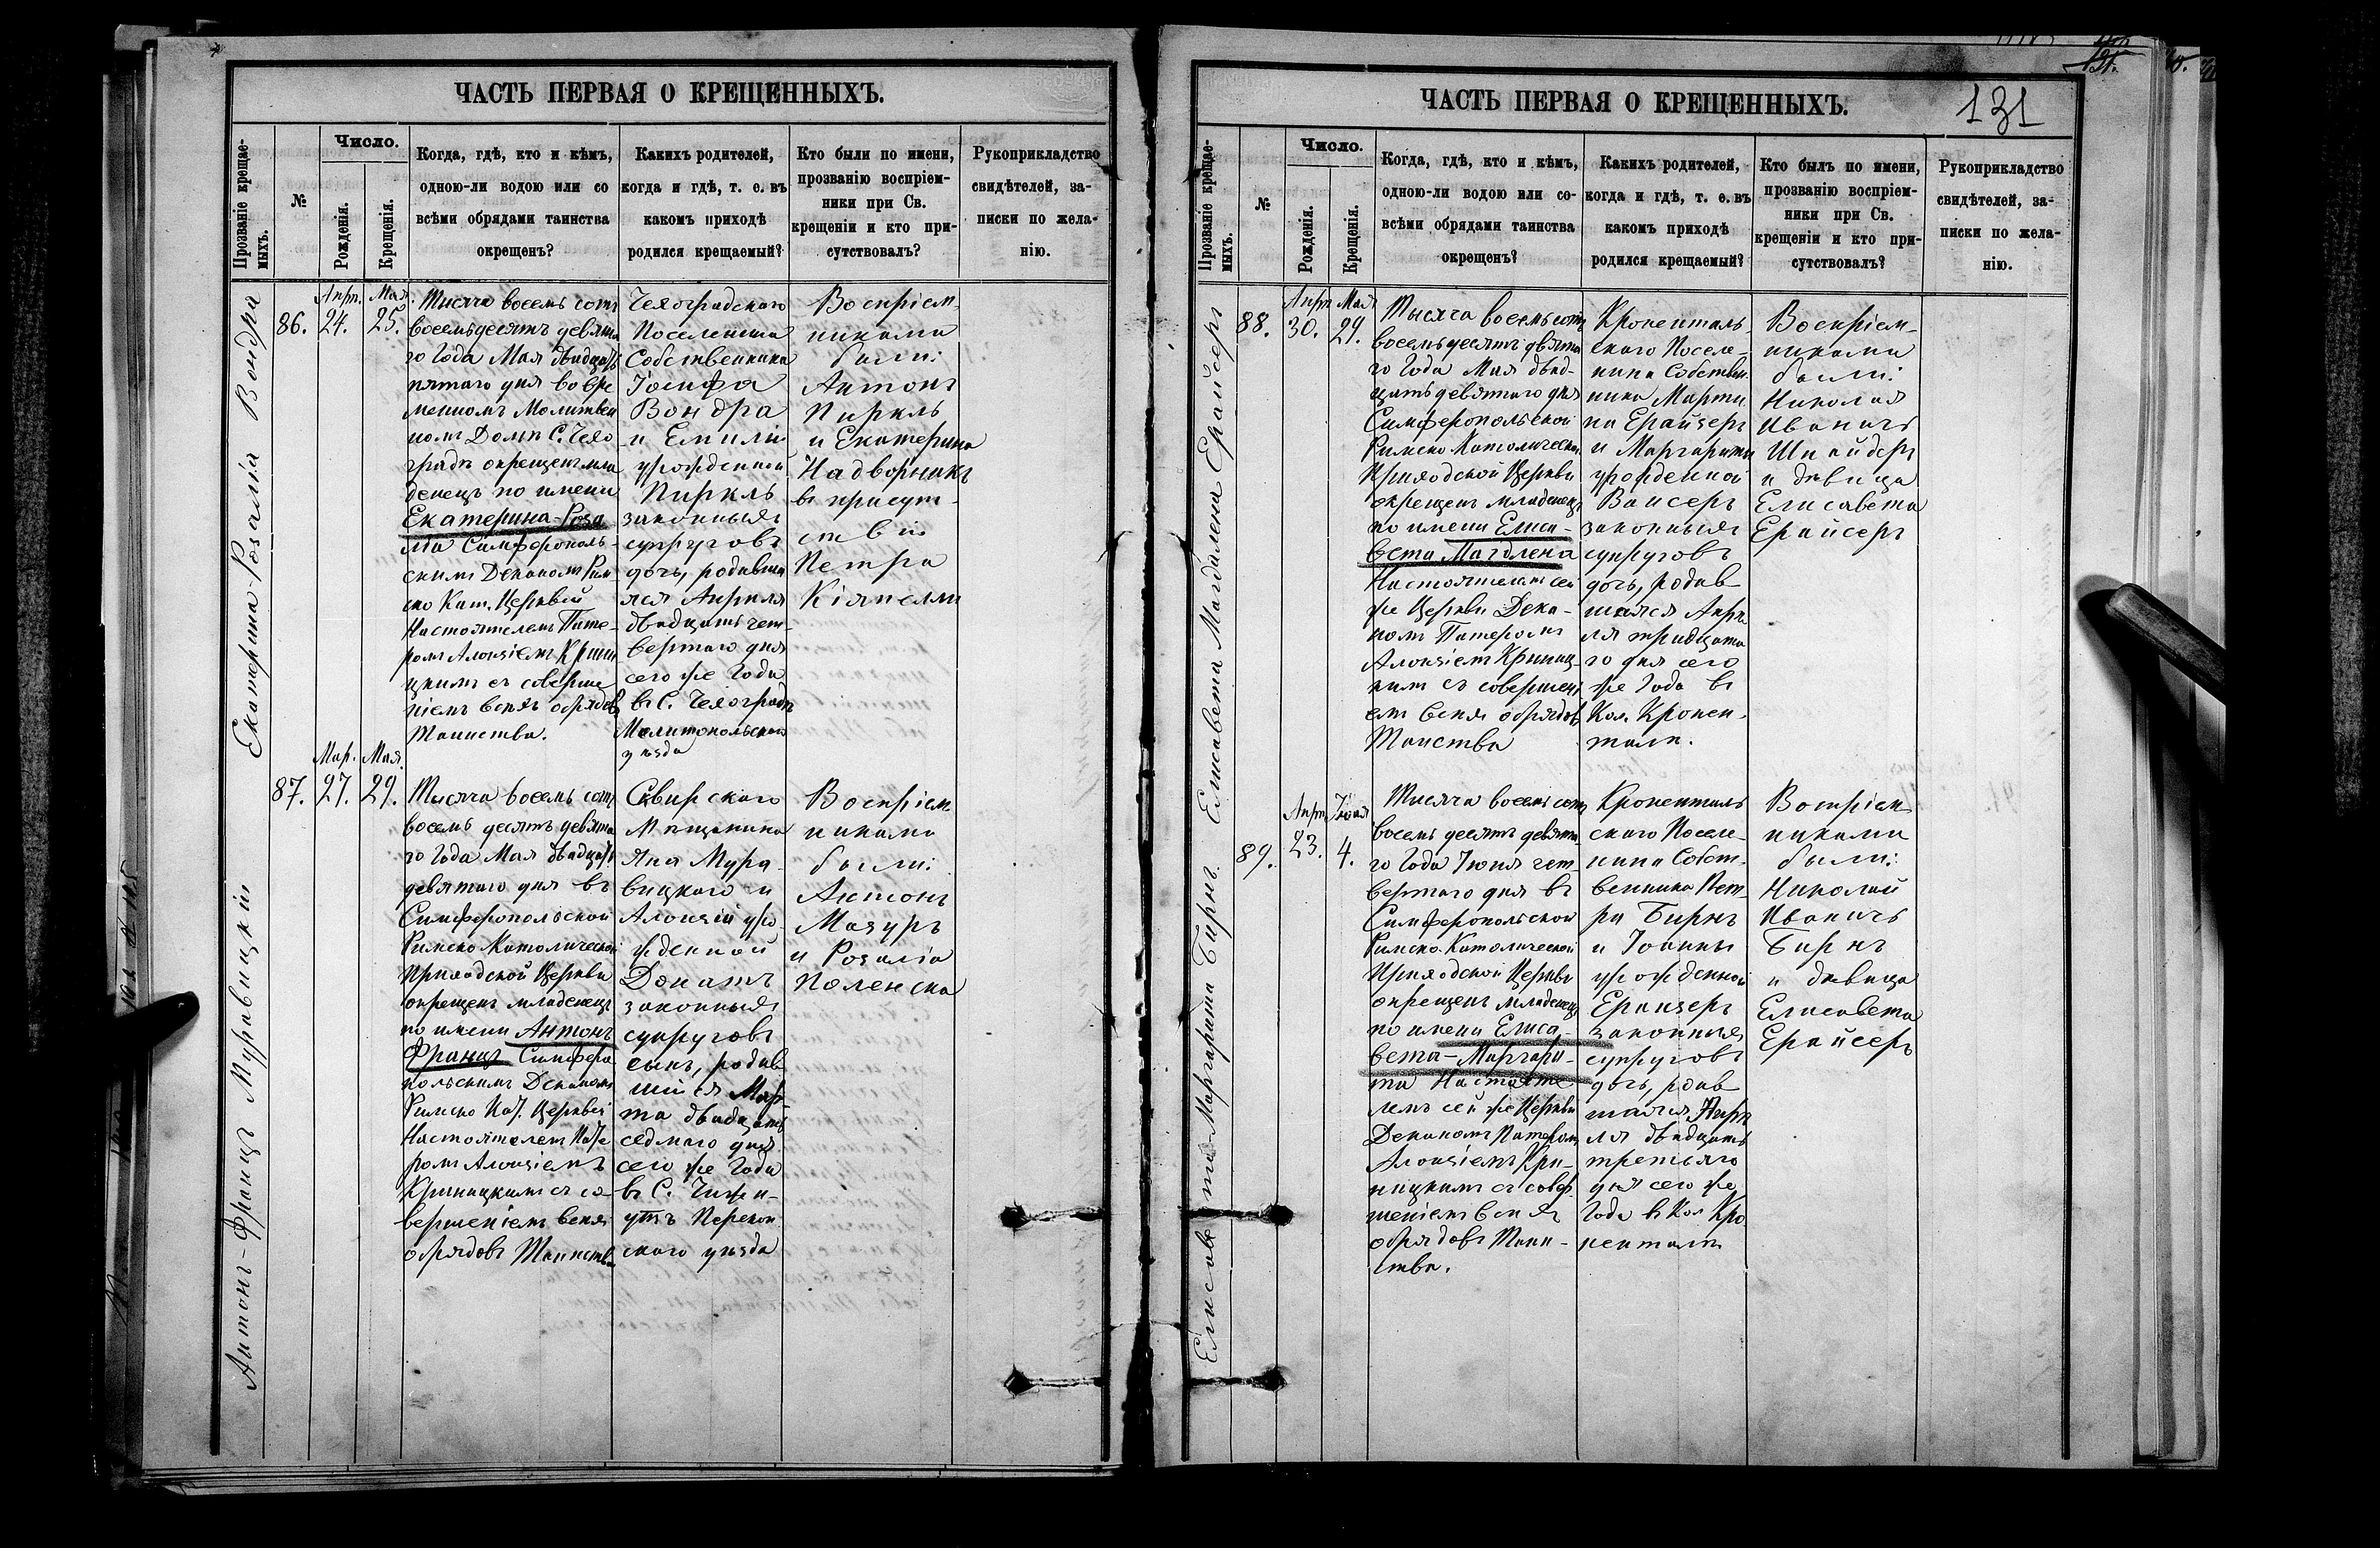 ЧАСТЬ ПЕРВАЯ О КРЕЩЕННЫХЪ.
Прозваніе крещае-
мыхъ.
№
Число.
Рожденія.
Крещенія.
Когда, гдѣ, кто и кѣмъ,
одною-ли водою или со
всѣми обрядами таинства
окрещенъ?
Какихъ родителей,
когда и гдѣ, т. е. въ
какомъ приходѣ
родился крещаемый?
Кто были по имени,
прозванію воспріем-
ники при Св.
крещеніи и кто при-
сутствовалъ?
Рукоприкладство
свидѣтелей, за-
писки по жела-
нію.
Екатерина-Розалія Вондра
86.
Апр.
24.
Мая.
25.
Тысяча восемь сотъ
восемьдесятъ девята
го Года Мая двадцать
пятаго дня во вре
менномъ Молитвен
номъ Домѣ С. Чехо
градъ окрещенъ мла
денецъ по имени
Екатерина-Роза
лія Симферополь-
скимъ Деканомъ Рим
ско Кат. Церквей
Настоятелемъ Пате-
ромъ Алоизіемъ Крини
цкимъ съ соверше
ніемъ всѣхъ обрядовъ
Таинства.
Чехоградскаго
Поселянина
Собственника
Іосифа
Вондра
и Емиліи
урожденной
Пиркль
законныхъ
супруговъ
дочь, родивша
яся Апрѣля
двадцать чет-
вертаго дня
сего же Года
въ С. Чехоградѣ
Мелитопольскаго
уѣзда
Воспріем-
никами
были:
Антонъ
Пиркль
и Екатерина
Надворникъ
въ присут-
ствіи
Петра
Кіяпелли
Антонъ-Францъ Муравицкій
87.
Мар.
27.
Мая.
29.
Тысяча восемь сотъ
восемь десятъ девята
го Года Мая двадцать
девятаго дня въ
Симферопольской
Римско Католической
Приходской Церкви
окрещенъ младенецъ
по имени Антонъ
Францъ Симферо
польскимъ Деканомъ
Римско Кат. Церквей
Настоятелемъ Пате
ромъ Алоизіемъ
Криницкимъ съ со-
вершеніемъ всѣхъ
обрядовъ Таинства
Свирскаго
Мѣщанина
Яна Мура-
вицкаго и
Алоизіи уро-
жденной
Донатъ
законныхъ
супруговъ
сынъ, родив
шійся Мар-
та двадцать
седмаго дня
сего же Года
въ С. Чирки-
утъ Перекоп
скаго уѣзда
Воспріем
никами
были:
Антонъ
Мазуръ
и Розалія
Поленска
ЧАСТЬ ПЕРВАЯ О КРЕЩЕННЫХЪ.
131
Прозваніе крещае-
мыхъ.
№
Число.
Рожденія.
Крещенія.
Когда, гдѣ, кто и кѣмъ,
одною-ли водою или со-
всѣми обрядами таинства
окрещенъ?
Какихъ родителей,
когда и гдѣ, т. е. въ
какомъ приходѣ
родился крещаемый?
Кто былъ по имени,
прозванію воспріем-
ники при Св.
крещеніи и кто при-
сутствовалъ?
Рукоприкладство
свидѣтелей, за-
писки по жела-
нію.
Елисавета Магдалена Ерайсеръ
88.
Апр.
30.
Мая
29.
Тысяча восемь сотъ
восемьдесятъ девята
го Года Мая двад-
цать девятаго дня
Симферопольской
Римско Католической
Приходской Церкви
окрещенъ младенецъ
по имени Елиса-
вета Магдлена
Настоятелемъ сей
же Церкви Дека-
номъ Патеромъ
Алоизіемъ Криниц-
кимъ съ совершені
емъ всѣхъ обрядовъ
Таинства
Кроненталь-
скаго Поселя-
нина Собствен-
ника Марти
на Ерайзеръ
и Маргариты
урожденной
Вайсеръ
законныхъ
супруговъ
дочь, родив
шаяся Апрѣ
ля тридцата
го дня сего
же Года въ
Кол. Кронен-
талѣ.
Воспріем-
никами
были:
Николай
Иваничъ
Шнайдеръ
и дѣвица
Елисавета
Ерайсеръ
Елисавета-Маргарита Бирнъ.
89.
Апр.
23.
Іюня
4.
Тысяча восемь сотъ
восемь десятъ девята
го Года Іюня чет-
вертаго дня въ
Симферопольской
Римско-Католической
Приходской Церкви
окрещенъ младенецъ
по имени Елиса-
вета-Маргари-
та Настояте
лемъ сей же Церкви
Деканомъ Патеромъ
Алоизіемъ Кри-
ницкимъ съ совер-
шеніемъ всѣхъ
обрядовъ Таин-
ства.
Кроненталь
скаго Поселя-
нина Собст-
венника Пет-
ра Бирнъ
и Іоанны
урожденной
Ерайзеръ
законныхъ
супруговъ
дочь, родив
шаяся Апрѣ
ля двадцать
третьяго
дня сего же
Года въ Кол Кро
ненталѣ
Воспріем
никами
были:
Николай
Иваничъ
Бирнъ
и дѣвица
Елисавета
Ерайсеръ